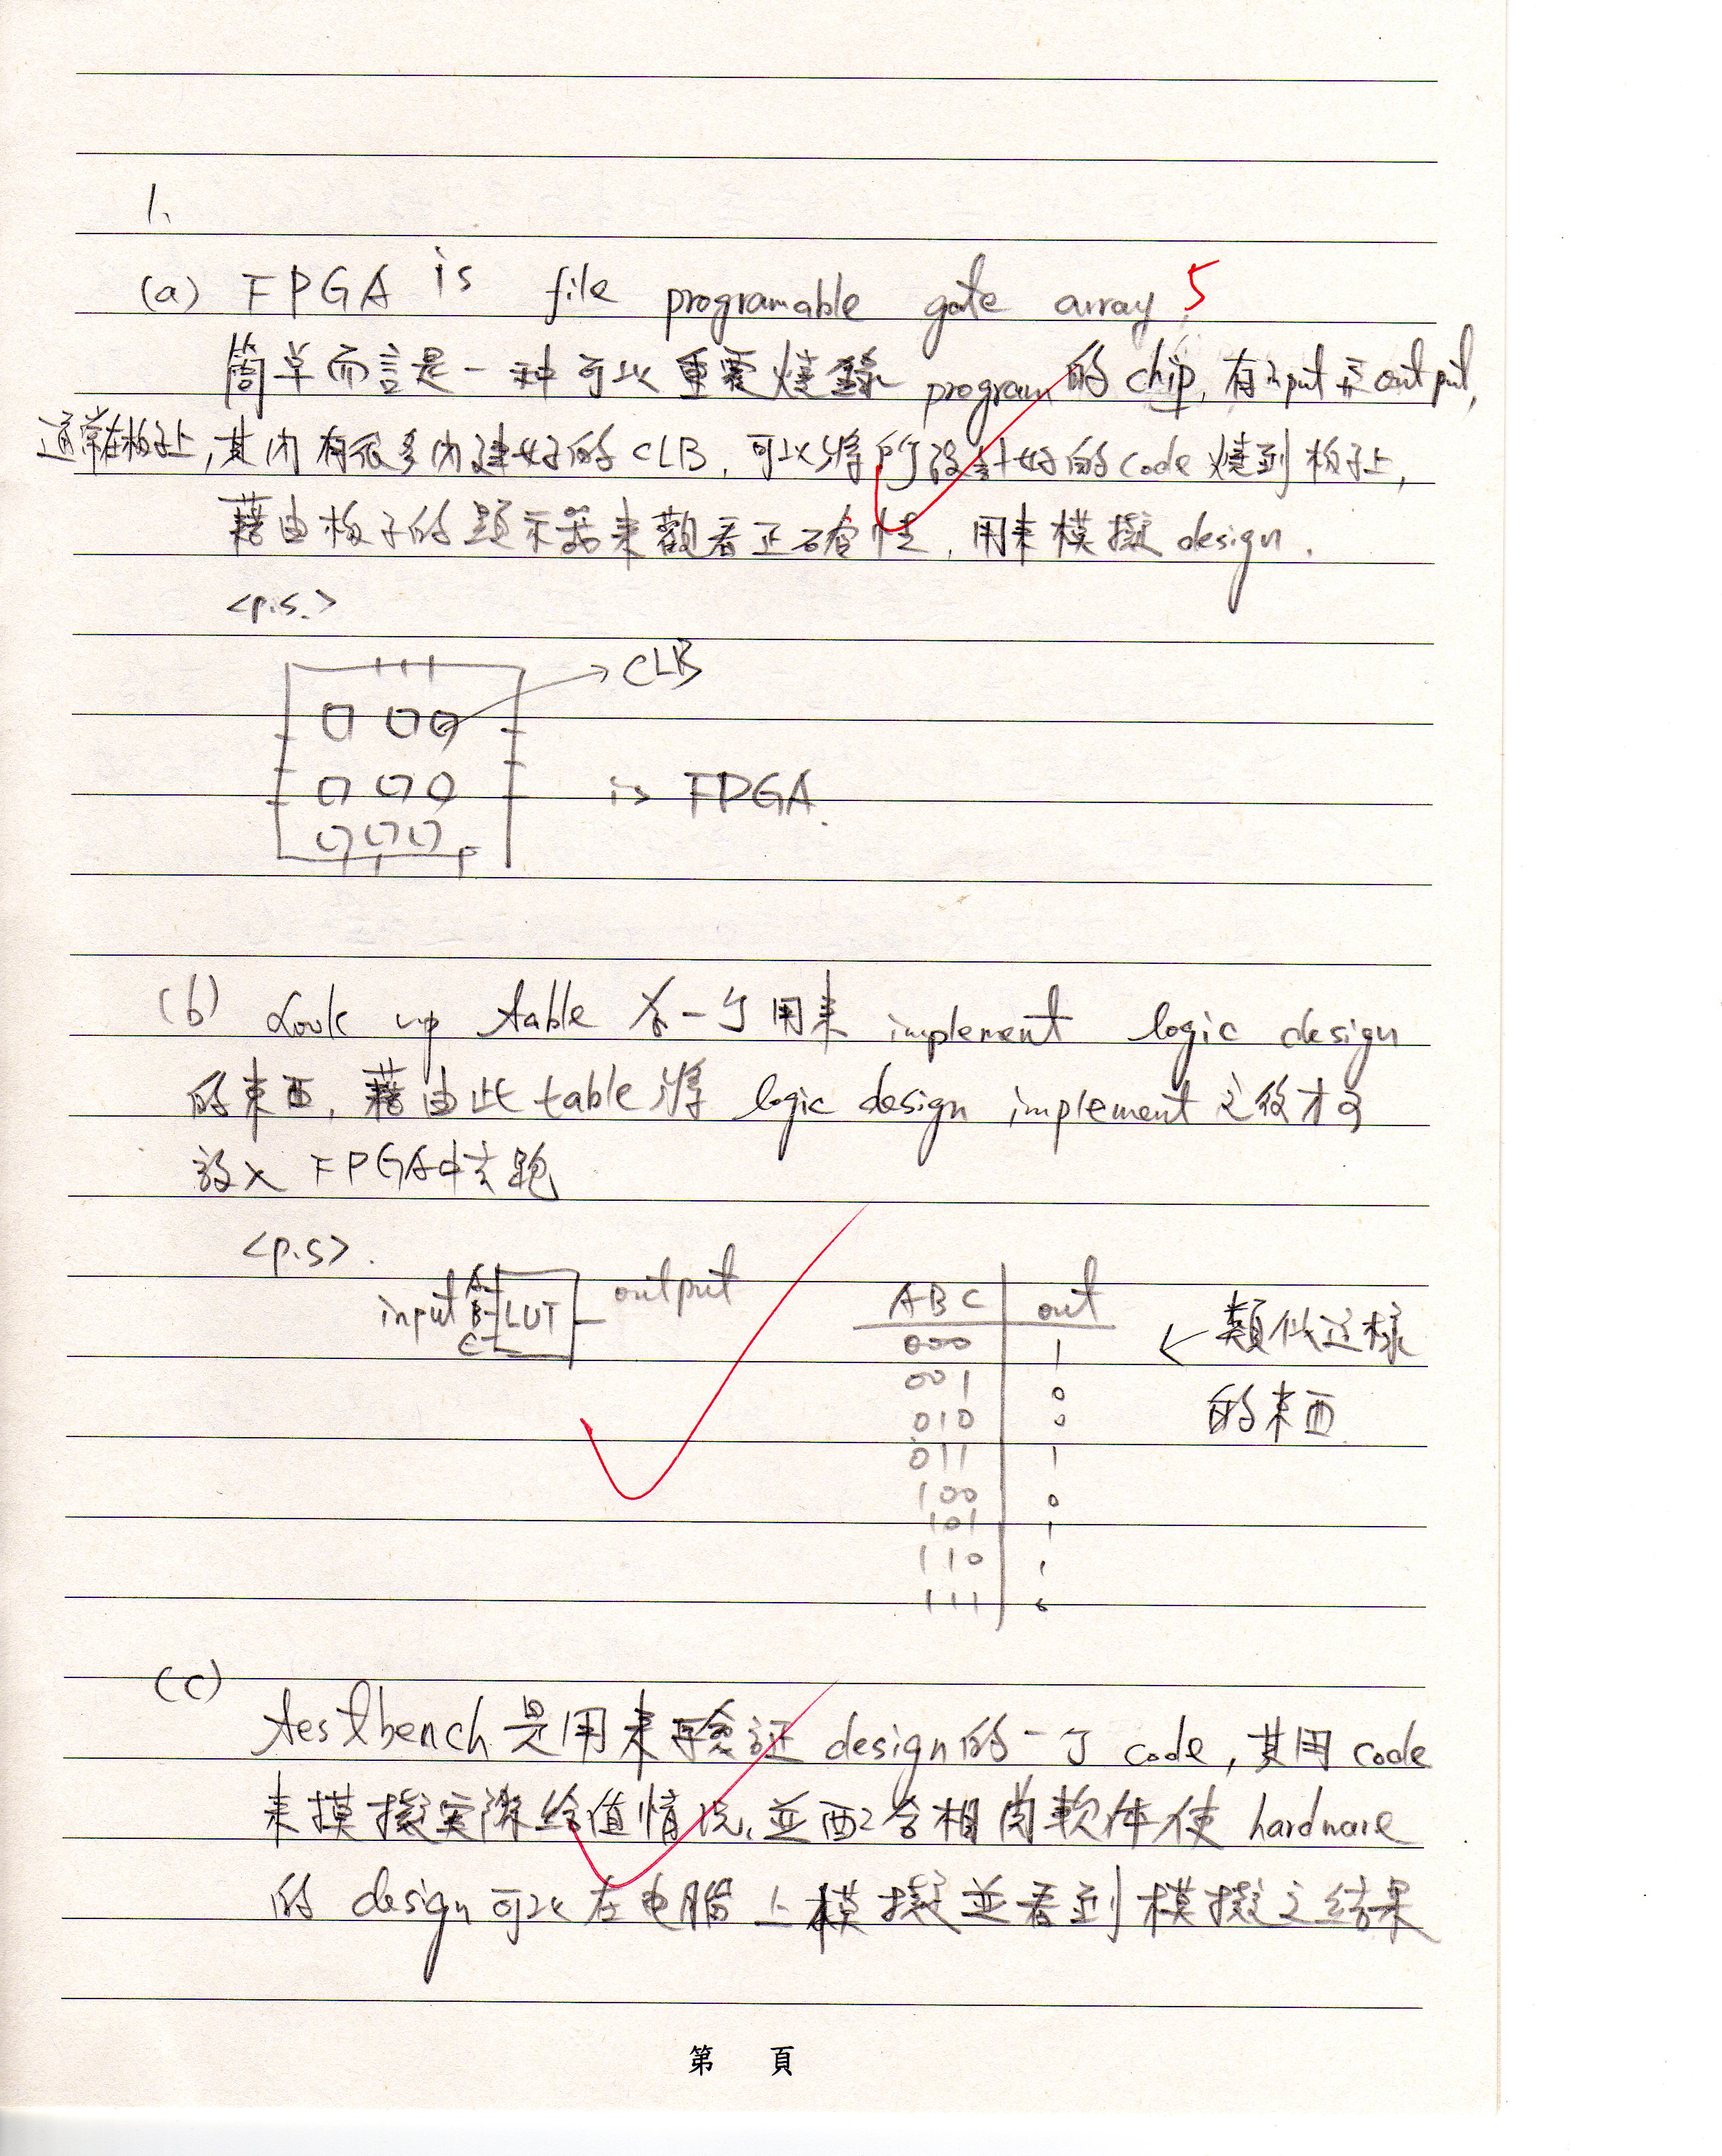 1.
(a) FPGA is file programable gate array. 5
簡單而言是一种可以重覆燒錄 program 的 chip, 有input 和 output,
通常在板子上, 其內有很多內建好的 CLB, 可以將所設計好的 code 燒到板子上,
藉由板子的顯示器來觀看正確性, 用來模擬 design.
<p.s.>
CLB
is FPGA.
(b) Look up table 為一个用來 implement logic design
的東西, 藉由此 table 將 logic design implement 之後才可
放入 FPGA中去跑
<p.s>.
input A B C LUT output
A B C out
000 1
001 0
010 0
011 1
100 0
101 1
110 1
111
← 類似这樣
的東西
(c)
testbench 是用來驗証 design 的一个 code, 其用 code
來摸擬实際給值情況, 並配合相関軟件使 hardware
的 design 可以在电腦上模擬並看到模擬之結果
第 頁